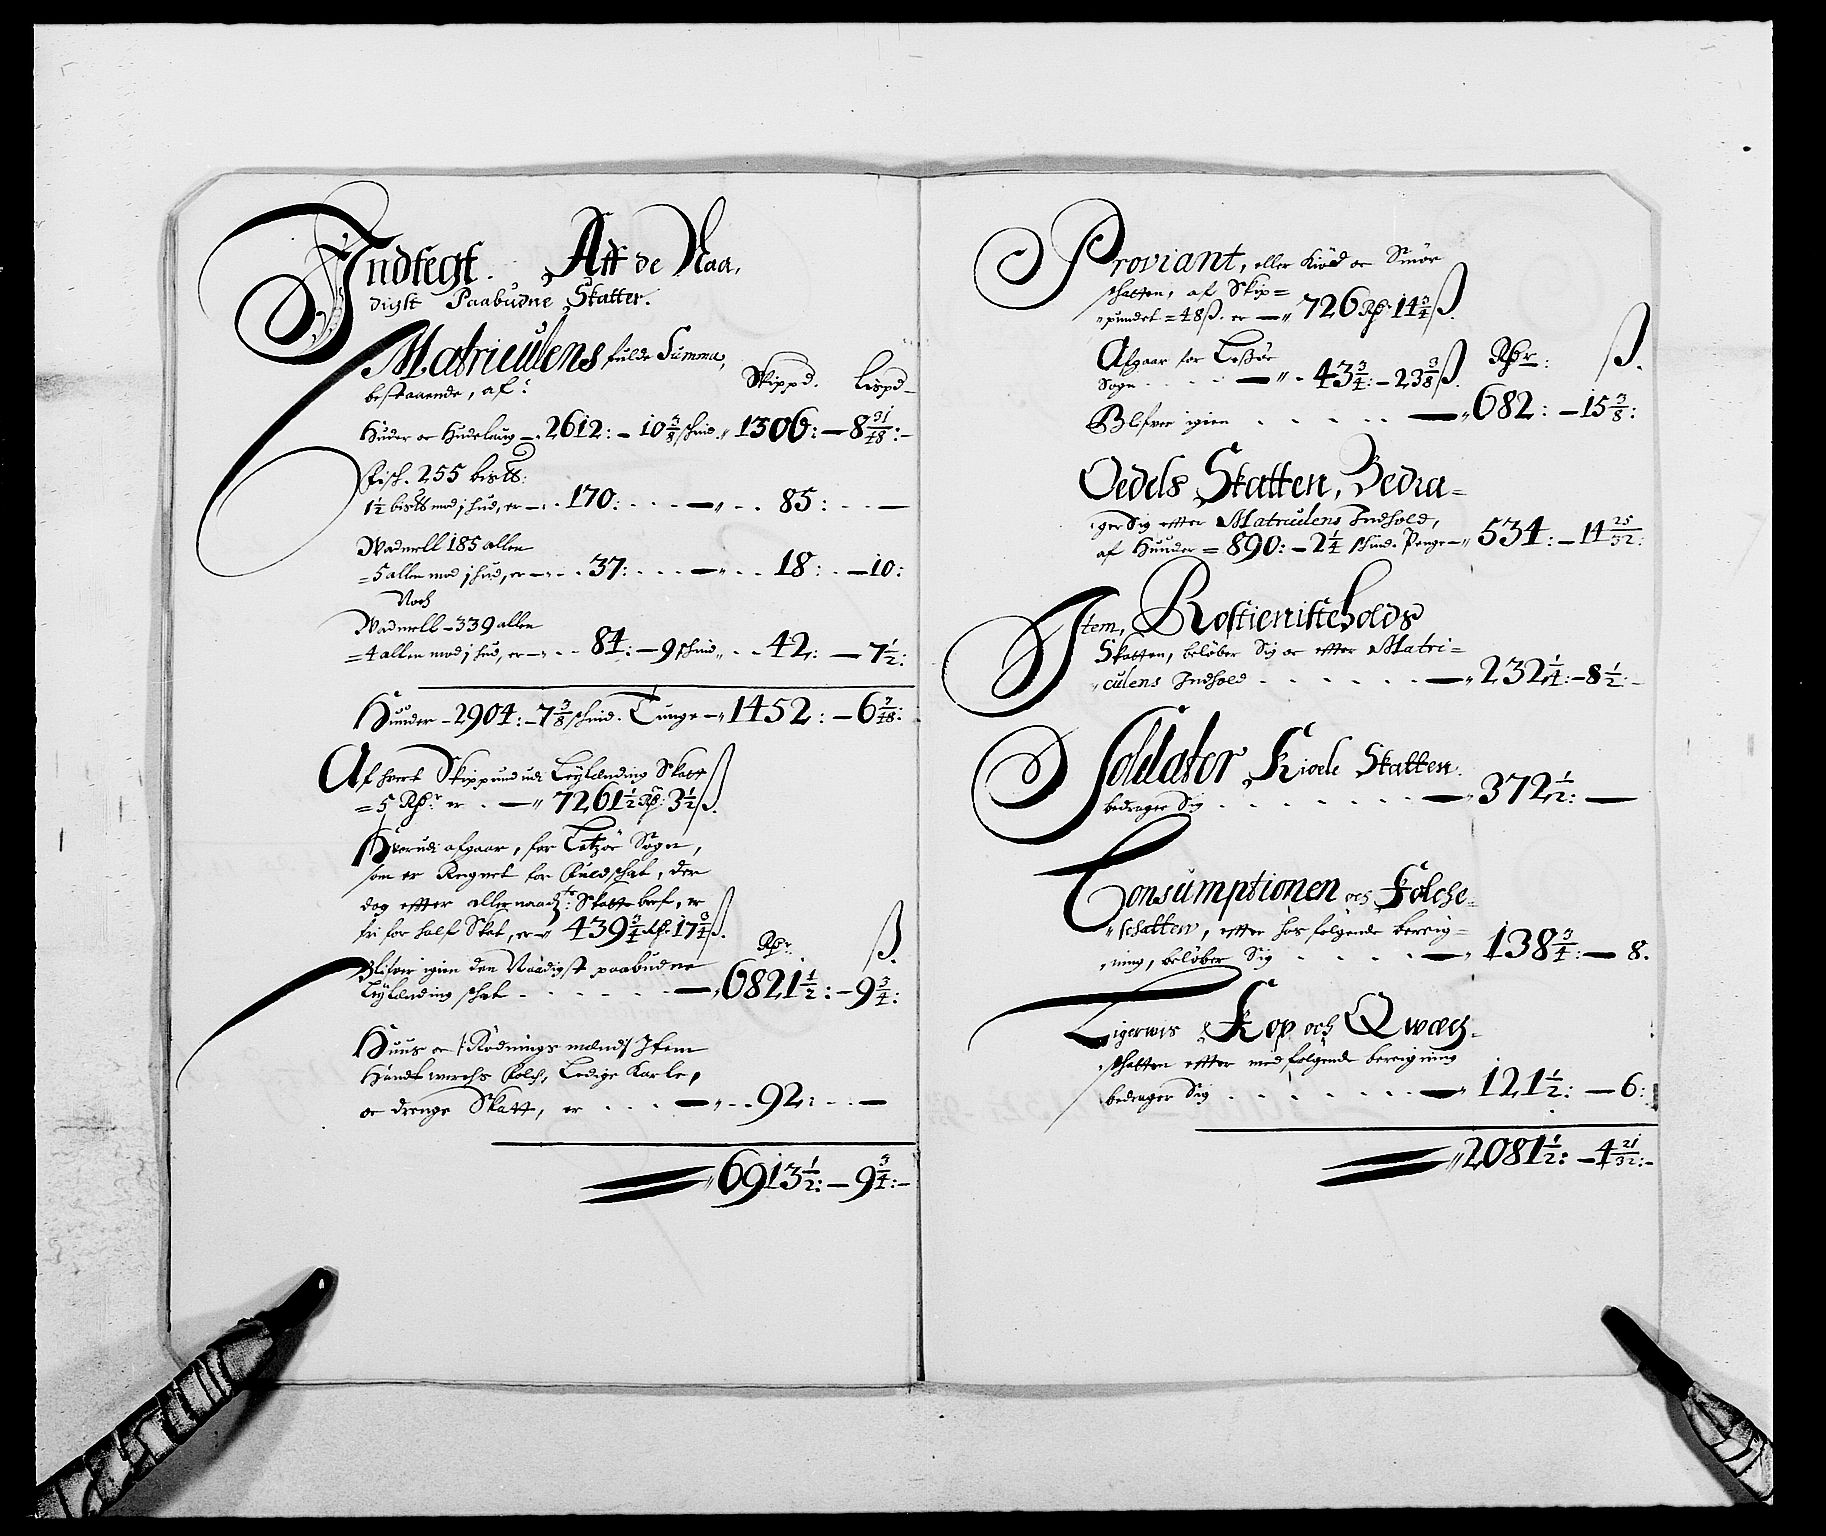 Indtegt. Aff de Naa,
digst Paabudne Skatter.
Matriculens fulde Summa,
bestaaende, af: Skippd. Lispd
Huder oc Hudelaug - 2612: - 10 3/8 skind. 1306: - 8 31/48:-
Fisk. 255 bis
1 1/2 bis mod j hud, er - 170: . . . - . . 85: . . -
Wadmell 185 allen
= 5 allen mod j hud, er - . . 37: . . . - . . 18: . -10:
Noch
Wadmell - 339 allen
= 4 allen mod j hud, er - . . 84: - 9 skind . . 42: - 7 1/2:
Hunder - 2904: - 7 3/8 skind. Tunge - 1452: - 6 7/48:
Af hvert Skippund udi Leylending Skatt
= 5 Rdr. er . - 7261 1/2 Rd: 3 1/2 ß.
Herudi afgaar, for Sogn,
som er Reignet for fuld skat, der
dog effter allernaadste: Skatte bref, er
fri for half Skat, er 439 3/4 Rd: 17 3/4 ß.
Rdr. ß.
Blifver igien den Naadigst paabudne
Leylending skat . . . . . . - 6821 1/2: - 9 3/4:
Huus oc /: Rødnings mænd :/ Item
Handtwerchs folch, Ledige Karle,
oc drenge Skatt, er . . . - . . 92: . . -
6913 1/2: - 9 3/4:-
Proviant, eller Kiød oc Smør
skatten, af Skip=
pundet = 48 ß. er - 726 Rd: 14 3/4 ß.
Afgaar for Rdr: ß.
Sogn . . . . - . 43 3/4: - 23 3/8 ß.
Blfver igien . . . . . - 682: - 15 3/8:
Oedels Skatten, Bedra=
ger Sig effter Matriculens Indhold,
af Hunder = 890: - 2 1/4 skind. Penge - 534: - 14 25/32:
Item, Rostienisteholds
Skatten, beløber Sig oc effter Matri=
culens Indhold . . . . . . - 232 1/4: - 8 1/2:-
Soldater Kiole Skatten.
bedrager Sig . . . . . . . - 372 1/2: -
Consumptionen och Folche=
schatten, effter hos følgende bereig=
ning, beløber Sig . . . . - 138 3/4: - 8.
Ligerwis Kop och Qwæg=
skatten effter med følgende bereigning
bedrager Sig . . . . . . . - 121 1/2: - 6:
2081 1/2: - 4 21/32:-